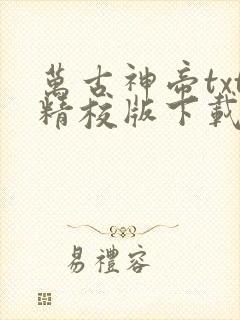 萬古神帝txt
精校版下載
易禮容